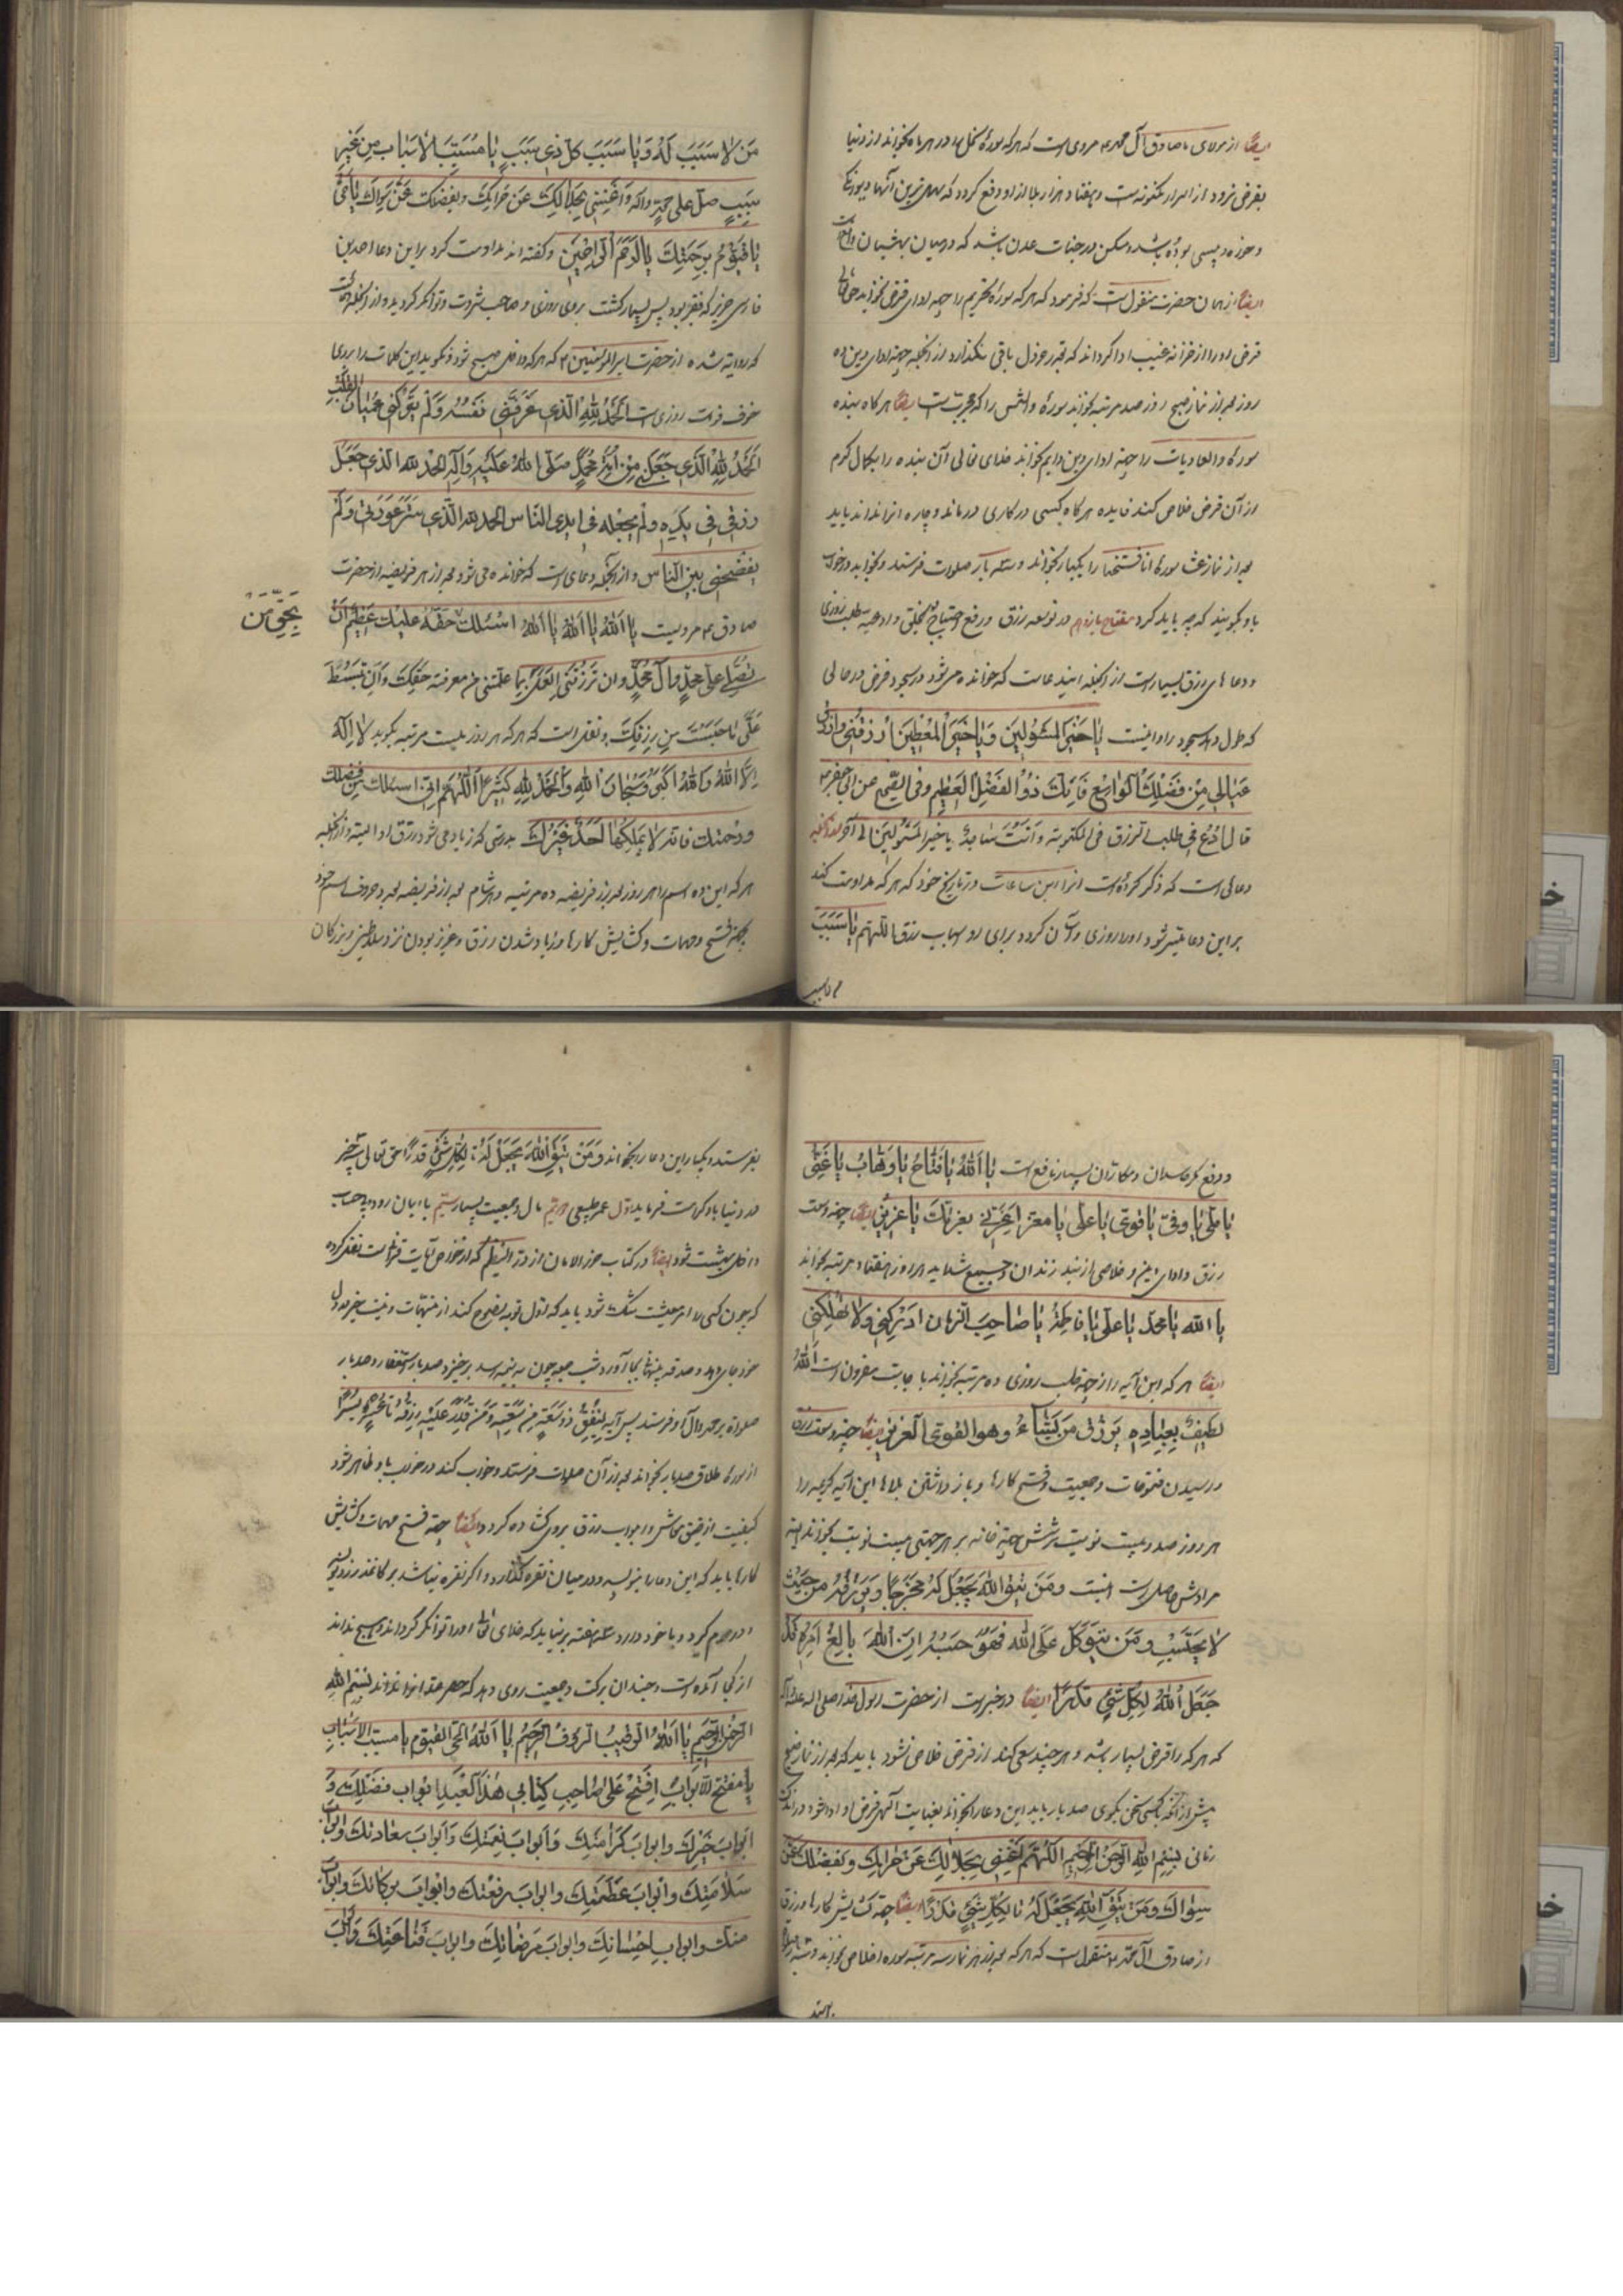 ایضا از مولای ما صادق آل محمد ع مرویست که هر که سوره نحل را در هر ماه بخواند در دنیا
بقرض نرود از اسرار مکنونه است و هفتاد هزار بلا از او دفع گردد که سهل‌ترین آنها دیوانگی
و خوره و پیسی بوده باشد و مسکن در جنات عدن باشد که در میان بهشتهاست
ایضا از همان حضرت منقول است که فرمود که هر که سوره تحریم را جهة ادای قرض بخواند حق تعالی
قرض او را از خزانه غیب ادا گرداند که بقدر خردل باقی نگذارد از آنجمله جهة ادای دین ده
روز بعد از نماز صبح روز صد مرتبه بخواند سوره والشمس را که مجربست ایضا هر گاه بنده
سوره والعادیات را جهة ادای دین دایم بخواند خدای تعالی آن بنده را بکمال کرم
از آن قرض خلاص کند فایده هر گاه کسی در کاری درماند و چاره آنرا نداند باید
بعد از نماز عشا سوره انا فتحنا را یکبار بخواند و سه بار صلوات فرستد و بخوابد در خواب
باو بگویند که چه باید کرد مفتاح یازدهم در توسعه رزق و رفع احتیاج بخلق و ادعیه طلب روزی
و دعاهای رزق بسیار است از آنجمله ایندعاست که خوانده میشود در سجود فرض در حالی
که طول دهد سجود را و اینست یا خَیْرَ الْمَسْئُولینَ وَ یا خَیْرَ الْمُعْطینَ اُرْزُقْنی وَارْزُقْ
عَیالی مِنْ فَضْلِکَ الْواسِعِ فَاِنَّکَ ذُو الْفَضْلِ الْعَظیمِ وفی الصحیح عن ابی جعفر ع
قال ادع فی طلب الرزق فی المکتوبة و انت ساجد یا خیر المسئولین الی آخره و از آنجمله
دعائی است که ذکر کرده است آنرا ابن ساعات در تاریخ خود که هر که مداومت کند
بر این دعا میسر شود او را روزی و آسان گردد برای او اسباب رزق اللهم یا سَبَبَ
مَنْ لا سَبَبَ لَهُ وَ یا سَبَبَ کُلِّ ذی سَبَبٍ یا مُسَبِّبَ الْاَسْبابِ مِنْ غَیْرِ
سَبَبٍ صَلِّ عَلی مُحَمَّدٍ وَ آلِهِ وَ اَغْنِنی بِحَلالِکَ عَنْ حَرامِکَ وَ بِفَضْلِکَ عَمَّنْ سِواکَ یا حَیُّ
یا قَیُّومُ بِرَحْمَتِکَ یا اَرْحَمَ الرّاحِمینَ و گفته‌اند مداومت کرد بر این دعا احد بن
فارس جزیر که فقیر بود پس بسیار گشت بر وی روزی و صاحب ثروت و توانگر گردید و از آنجمله
که روایة شده از حضرت امیرالمؤمنین ع که هر که داخل صبح شود و نگوید این کلمات را بر وی
خوف فوت روزی است اَلْحَمْدُ لِلّهِ الَّذی عَرَّفَنی نَفْسَهُ وَلَمْ یَتْرُکْنی عُمْیانَ الْقَلْبِ
اَلْحَمْدُ لِلّهِ الَّذی جَعَلَنی مِنْ اُمَّةِ مُحَمَّدٍ صَلَّی اللهُ عَلَیْهِ وَآلِهِ الحمد لله الذی جَعَلَ
رزقی فی یَدِهِ ولم یجعله فی ایدی الناس الحمد لله الَّذی سَتَرَ عَوْرَتی وَلَمْ
یفضحنی بین الناس و از آنجمله دعای است که خوانده می‌شود بعد از هر فریضه از حضرت
صادق ع مرویست یا اَللهُ یا اَللهُ یا اَللهُ اسئلک حَقُّهُ عَلَیْکَ عَظیمٌ اَنْ
بِحَقِّ مَنْ
تُصَلِّیَ عَلی محمدٍ و آل محمدٍ وان تَرْزُقَنی العَمَلَ بِما علمتنی من معرفة حَقِّکَ وَاَنْ تَبْسُطَ
عَلَیَّ ما حَبَسْتَ مِنْ رِزْقِکَ و نقلی است که هر که هر روز بیست مرتبه بگوید لا اِلهَ
اِلَّا اللهُ وَاللهُ اَکْبَرُ وَسُبْحانَ اللهِ وَالْحَمْدُ لِلّهِ کَثیراً اَللّهُمَّ اِنّی اسئلک مِنْ فضلک
ورحمتک فانه لا یَمْلِکُها اَحَدٌ غَیْرُکَ بدرستی که زیاد می‌شود رزق او البته و از آنجمله
هر که این ده اسم را هر روز بعد از فریضه ده مرتبه و هر شام بعد از فریضه بعدد حروف اسم خود
بجهة فتح مهمات و گشایش کارها و زیاد شدن رزق و عزیز بودن نزد سلاطین و بزرگان
و دفع مکر حاسدان و مکاران بسیار نافع است یا اَللهُ یا فَتّاحُ یا وَهّابُ یا غَنِیُّ
یا مَلِیُّ یا وَفِیُّ یا قَوِیُّ یا عَلِیُّ یا مُعِزُّ اَعِزَّنی بِعِزَّتِکَ یا عَزیزُ ایضا جهة وسعت
رزق و ادای دین و خلاصی از بند زندان و جمیع شداید هر روز هفتاد مرتبه بخواند
یا اَللهُ یا مُحَمَّدُ یا عَلِیُّ یا فاطِمَةُ یا صاحِبَ الزَّمانِ اَدْرِکْنی وَلا تُهْلِکْنی
ایضا هر که این آیه را از جهة طلب روزی ده مرتبه بخواند باجابت مقرونست اَللهُ
لَطیفٌ بِعِبادِهِ یَرْزُقُ مَنْ یَشاءُ وَهُوَ الْقَوِیُّ الْعَزیزُ ایضا جهة وسعت رزق
و رسیدن فتوحات و جمعیت و فتح کارها و باز داشتن بلاها این آیه کریمه را
هر روز صد و بیست نوبت بر شش جهة خانه بر هر جهتی بیست نوبت بخواند البته
مرادش حاصل است اینست وَمَنْ یَتَّقِ اللهَ یَجْعَلْ لَهُ مَخْرَجاً وَیَرْزُقْهُ مِنْ حَیْثُ
لا یَحْتَسِبُ وَمَنْ یَتَوَکَّلْ عَلَی اللهِ فَهُوَ حَسْبُهُ اِنَّ اللهَ بالِغُ اَمْرِهِ قَدْ
جَعَلَ اللهُ لِکُلِّ شَیْءٍ قَدْراً ایضا در خبرست از حضرت رسول خدا صلی الله علیه و آله
که هر که را قرض بسیار باشد و هر چند سعی کند از قرض خلاص نشود باید که بعد از نماز صبح
پیش از آنکه بکسی سخن بگوی صد بار باید این دعا را بخواند بعنایت الهی قرض او ادا شود در اندک
زمانی بِسْمِ اللهِ الرَّحْمنِ الرَّحیمِ اَللّهُمَّ اَغْنِنی بِحَلالِکَ عَنْ حَرامِکَ وَبِفَضْلِکَ عَمَّنْ
سِواکَ وَمَنْ یَتَّقِ اللهَ یَجْعَلْ لَهُ تا لِکُلِّ شَیْءٍ قَدْراً ایضا جهة گشایش کارها و رزق
از صادق آل محمد ع منقول است که هر که بعد از هر نماز سه مرتبه سوره اخلاص بخواند و سه مرتبه صلوات
بفرستد و یکبار این دعا را بخواند وَمَنْ یَتَّقِ اللهَ یَجْعَلْ لَهُ تا لِکُلِّ شَیْءٍ قَدْراً حق تعالی سه چیز
در دنیا باو کرامت فرماید اول عمر طبیعی دویم مال و جمعیت بسیار سیم با ایمان رود و بیحساب
داخل بهشت شود ایضا در کتاب حرز الامان از در النظیم که از خواص آیات قرآنست نقل کرده
که چون کسی را امر معیشت تنگ شود باید که اول توبه نصوح کند از منهیات و نیت خیر در دل
خود جای دهد و صدقه پنهانی بجا آورد شب جمعه چون به نیمه رسد برخیزد و صد بار استغفار و صد بار
صلوات بر محمد و آل او فرستد پس آیه لِیُنْفِقْ ذُو سَعَةٍ مِنْ سَعَتِهِ وَمَنْ قُدِرَ عَلَیْهِ رِزْقُهُ تا عُسْرٍ یُسْراً
از سوره طلاق صد بار بخواند بعد از آن صلوات فرستد و خواب کند در خواب باو ظاهر شود
کیفیت از ضیق معاش و ابواب رزق بر وی گشاده گردد ایضا جهة فتح مهمات و گشایش
کارها باید که این دعا را بنویسد و در میان نقره گذارد و اگر نقره نباشد بر کاغذ زرد
و در موم گیرد و با خود دارد سه هفته بر نیاید که خدای تعالی او را توانگر گرداند و هیچ نداند
از کجا آمده است و چندان برکت و جمعیت روی دهد که حصر عدد آنرا نداند بِسْمِ اللهِ
الرَّحْمنِ الرَّحیمِ یا اَللهُ الرَّقیبُ الرَّؤُفُ الرَّحیمُ یا اَللهُ الْحَیُّ الْقَیُّومُ یا مُسَبِّبَ الْاَسْبابِ
یا مُفَتِّحَ الْاَبْوابِ اِفْتَحْ عَلی صاحِبِ کِتابی هذَا الْعَبْدِ اَبْوابَ فَضْلِکَ وَ
اَبْوابَ خَیْرِکَ وَابوابَ کَرامَتِکَ وَاَبْوابَ نِعْمَتِکَ وَاَبْوابَ سَعادَتِکَ وَابوابَ
سَلامَتِکَ وَاَبْوابَ عَظَمَتِکَ وَابوابَ رِفْعَتِکَ وَاَبْوابَ بَرَکاتِکَ وَابوابَ
مَنِّکَ وابوابَ اِحْسانِکَ وَابوابَ مَرْضاتِکَ وَابوابَ قَناعَتِکَ وَاَبْوابَ